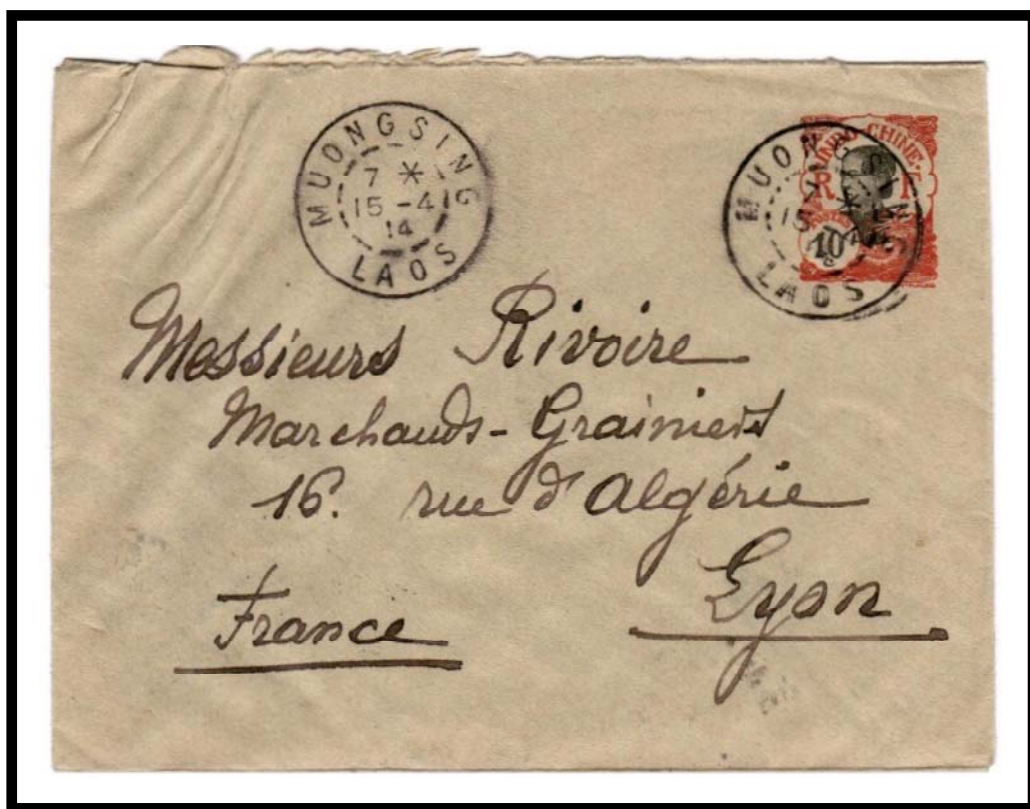 MUONGSING
7 *
15 -4
14
LAOS
MUONGSIN
15
LAOS
INDO-CHINE
R F
POSTES
10
Messieurs Rivoire
Marchands-Grainiers
16. rue d'Algérie
Lyon
France